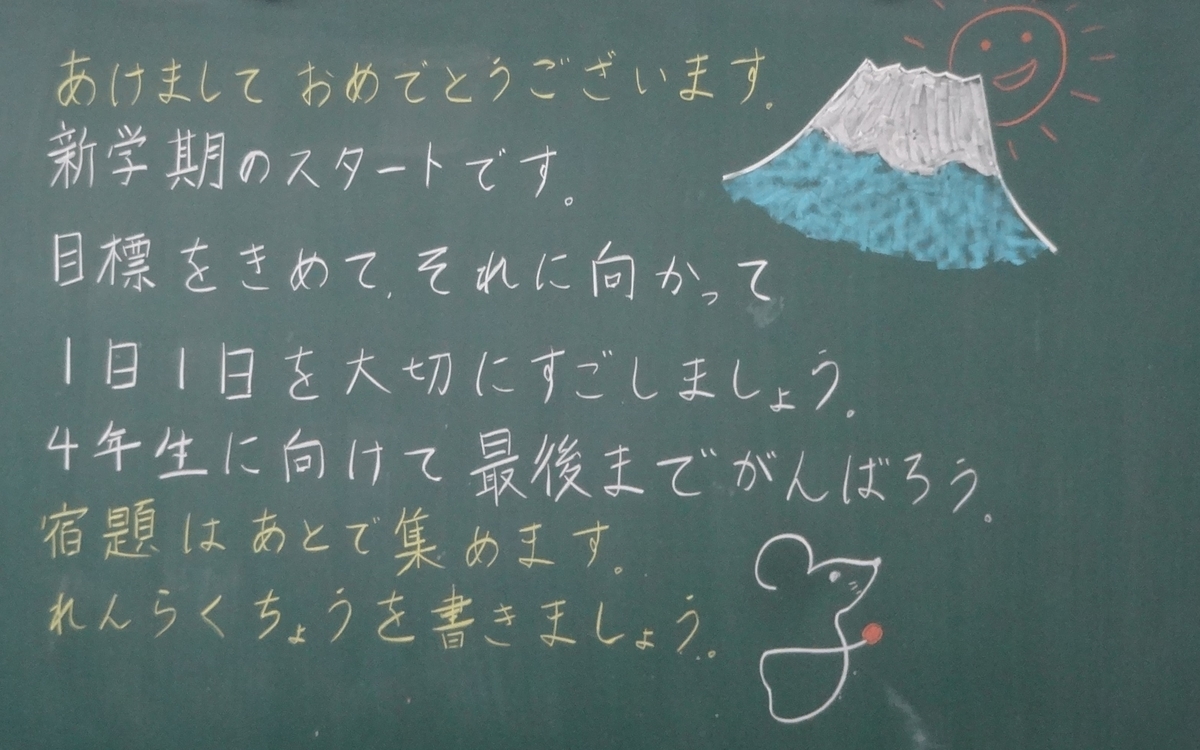 あけまして おめでとうございます。
新学期のスタートです。
目標をきめて、それに向かって
1日1日を大切にすごしましょう。
4年生に向けて最後までがんばろう。
宿題はあとで集めます。
れんらくちょうを書きましょう。